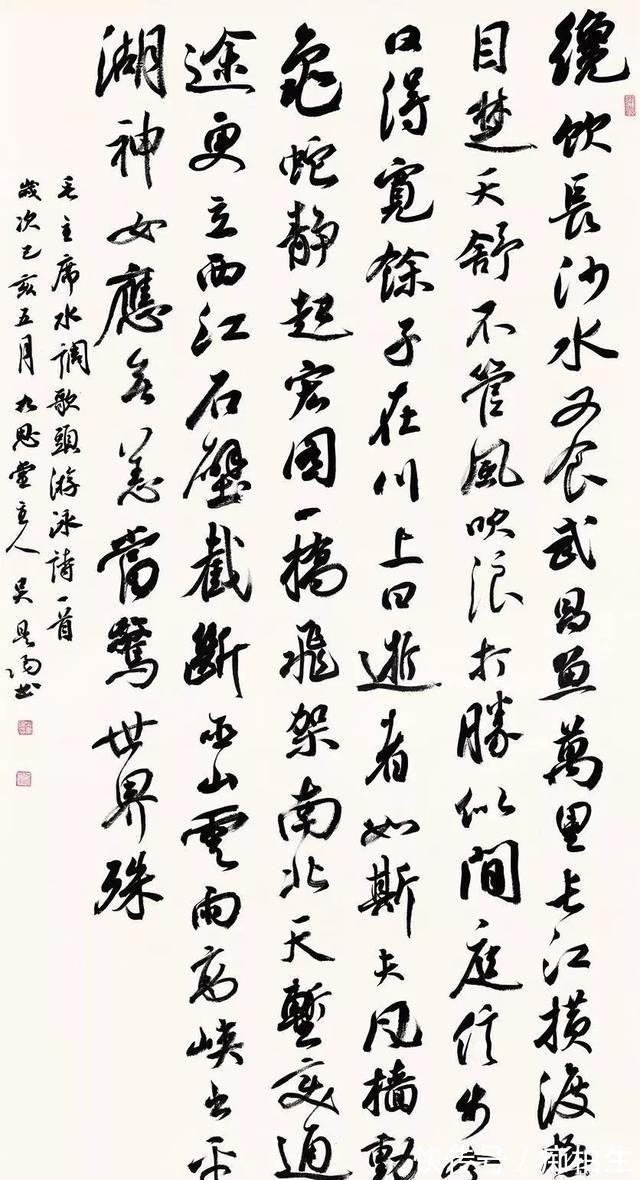 纔飲長沙水又食武昌魚萬里長江橫渡極
目楚天舒不管風吹浪打勝似間庭信步今
日得寬餘子在川上曰逝者如斯夫風檣動
龜蛇靜起宏圖一橋飛架南北天塹變通
途更立西江石壁截斷巫山雲雨高峽出平
湖神女應無恙當驚世界殊
毛主席水調歌頭游泳詩一首
歲次己亥五月九思堂主人吳書
快传号 /